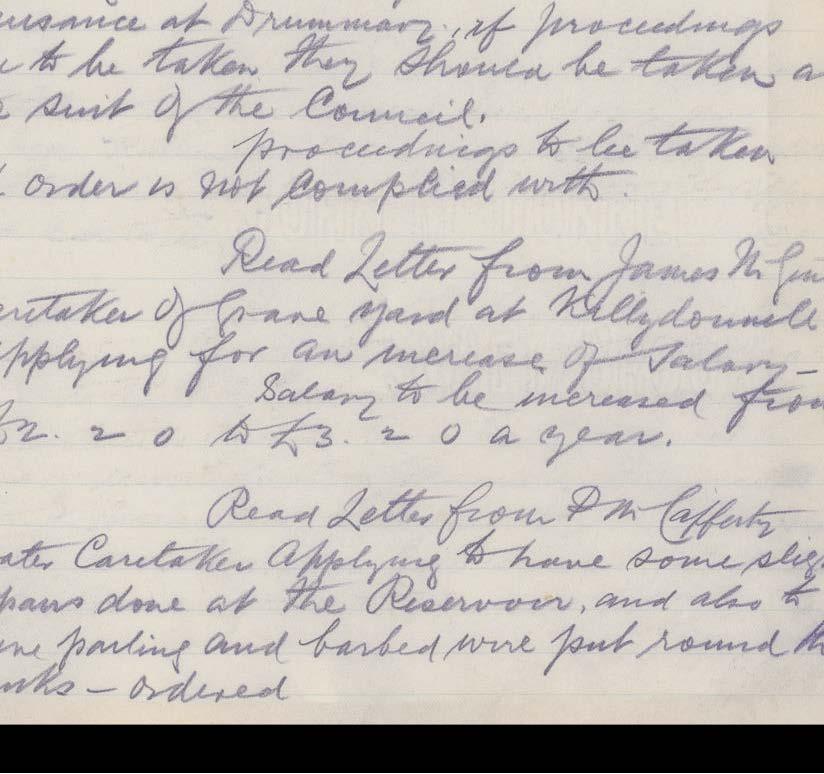 uisance at Drummany, if proceedings
to be taken they should be taken a
suit of the Council.
proceedings to be taken
order is not complied with.
Read Letter from James Mc Gin
aretaker of Grave yard at Killydonnell
applying for an increase of Salary —
Salary to be increased from
£2. 2 0 to £3. 2 0 a year.
Read Letter from P Mc Cafferty
ater Caretaker Applying to have some slig
pairs done at the Reservoir, and also to
paling and barbed wire put round th
— ordered